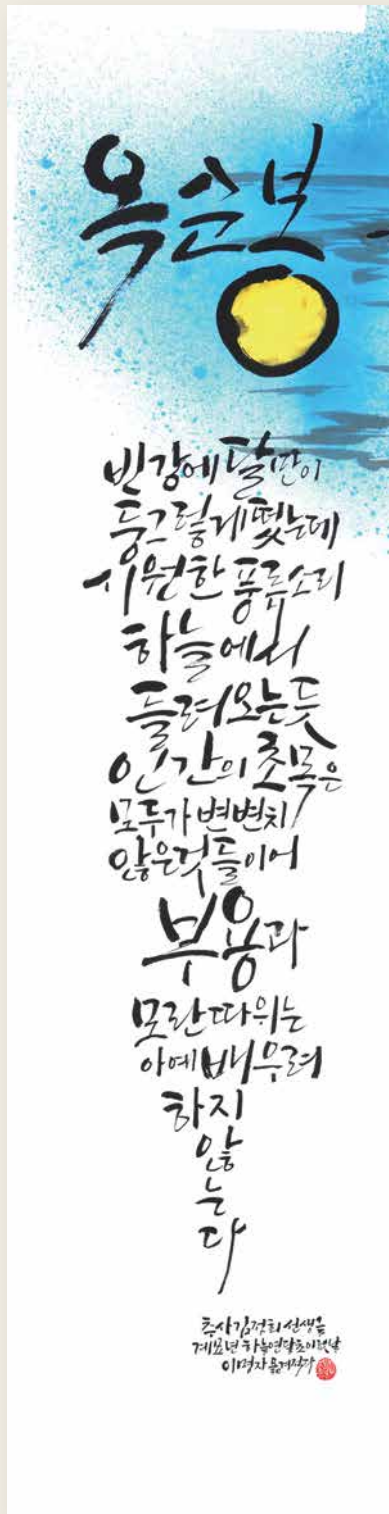 옥순봉
빈 강에 달만이
둥그렇게 떴는데
시원한 풍류소리
하늘에서
들려오는듯
인간의 초목은
모두가 변변치
않은것들이어
부용과
모란따위는
아예 배우려
하지
않
는
다
추사 김정희 선생 글
계묘년 하늘연달 초이렛날
이명자 옮겨적다